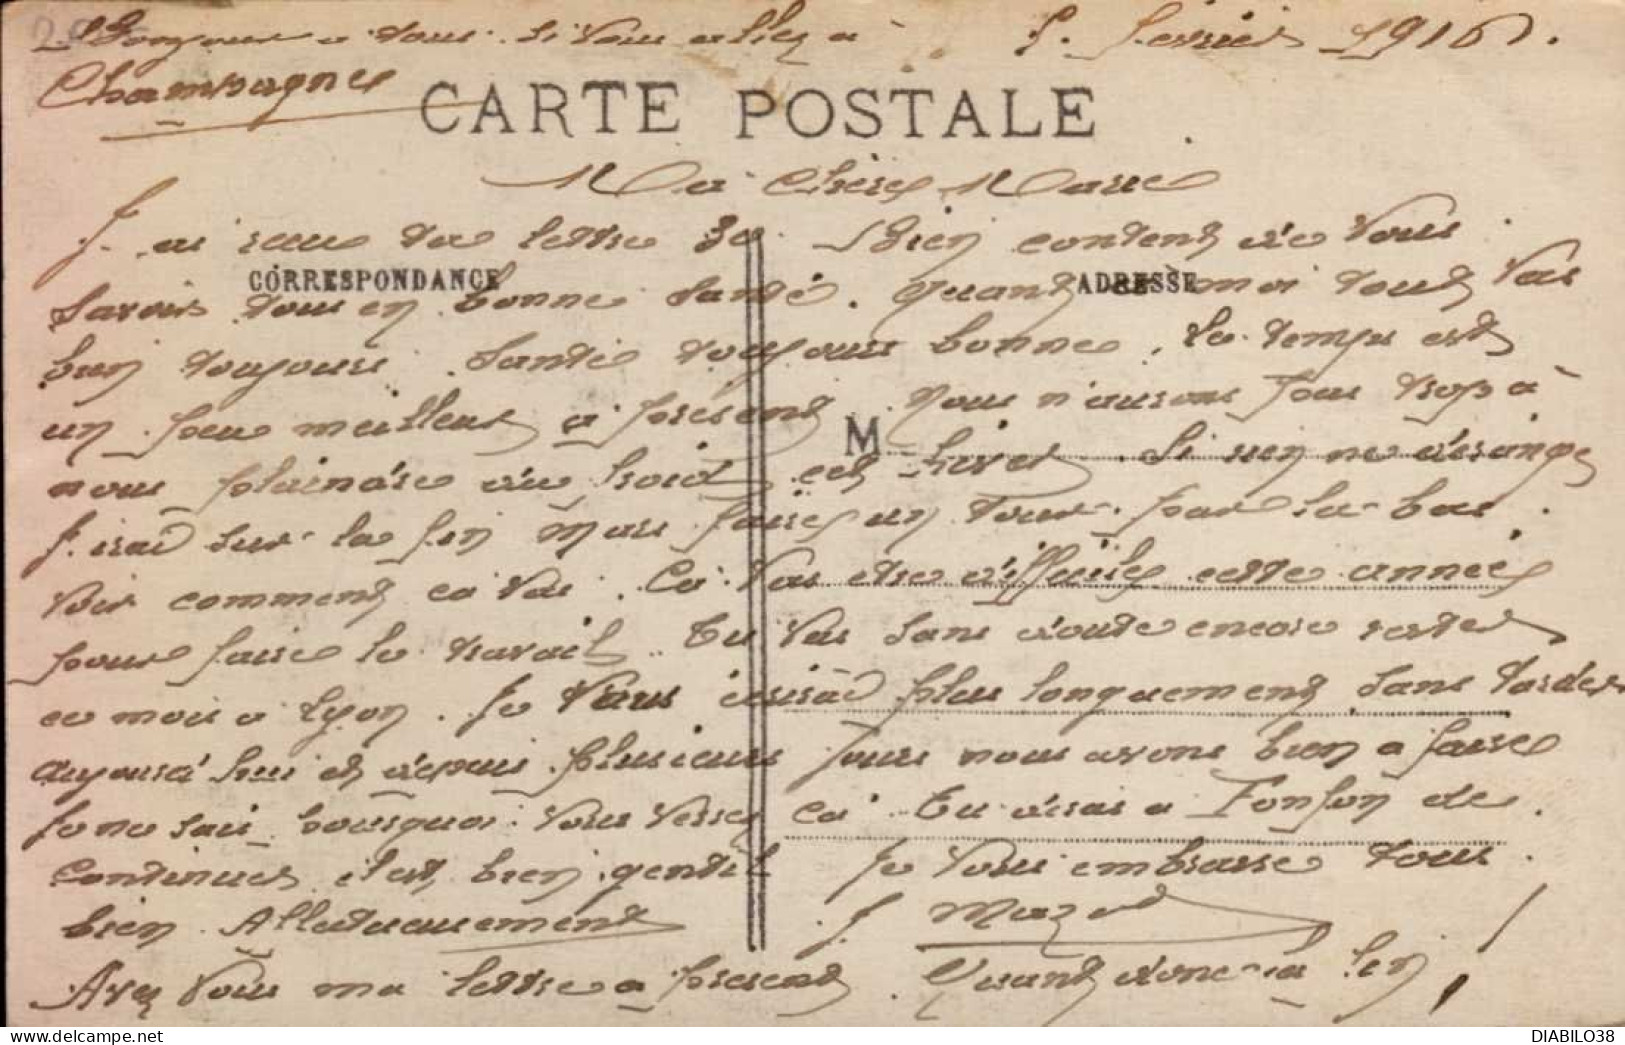 Bonjour a tous si vous allez a
Champagne
5. Février 1916.
CARTE POSTALE
Ma Chère Marie
J. ai recu ta lettre 30. Bien content de vous
CORRESPONDANCE
ADRESSE
savoir tous en bonne santé. quant a moi tout vas
bien toujours. Santé toujours bonne. le temps est
un peu meilleur a présent. Nous n'aurons pas trop à
M
nous plaindre du froid cet hiver. Si rien ne dérange
J. irai sur la fin Mars faire un tour par la bas.
voir comment ca va. Ca vas etre difficile cette année
pour faire le travail. Tu vas sans doute encore rester
ce mois a Lyon. Je vous écrirai plus longuement sans tarder
aujourd'hui et depuis plusieurs jours nous avons bien a faire
je ne sais pourquoi. vous verrez ca. Tu diras a Fonfon de
continuer il est bien gentil. Je vous embrasse tous.
bien Affectueusement J.
Avez vous ma lettre a présent. Quant donc la fin !
DIABILO38